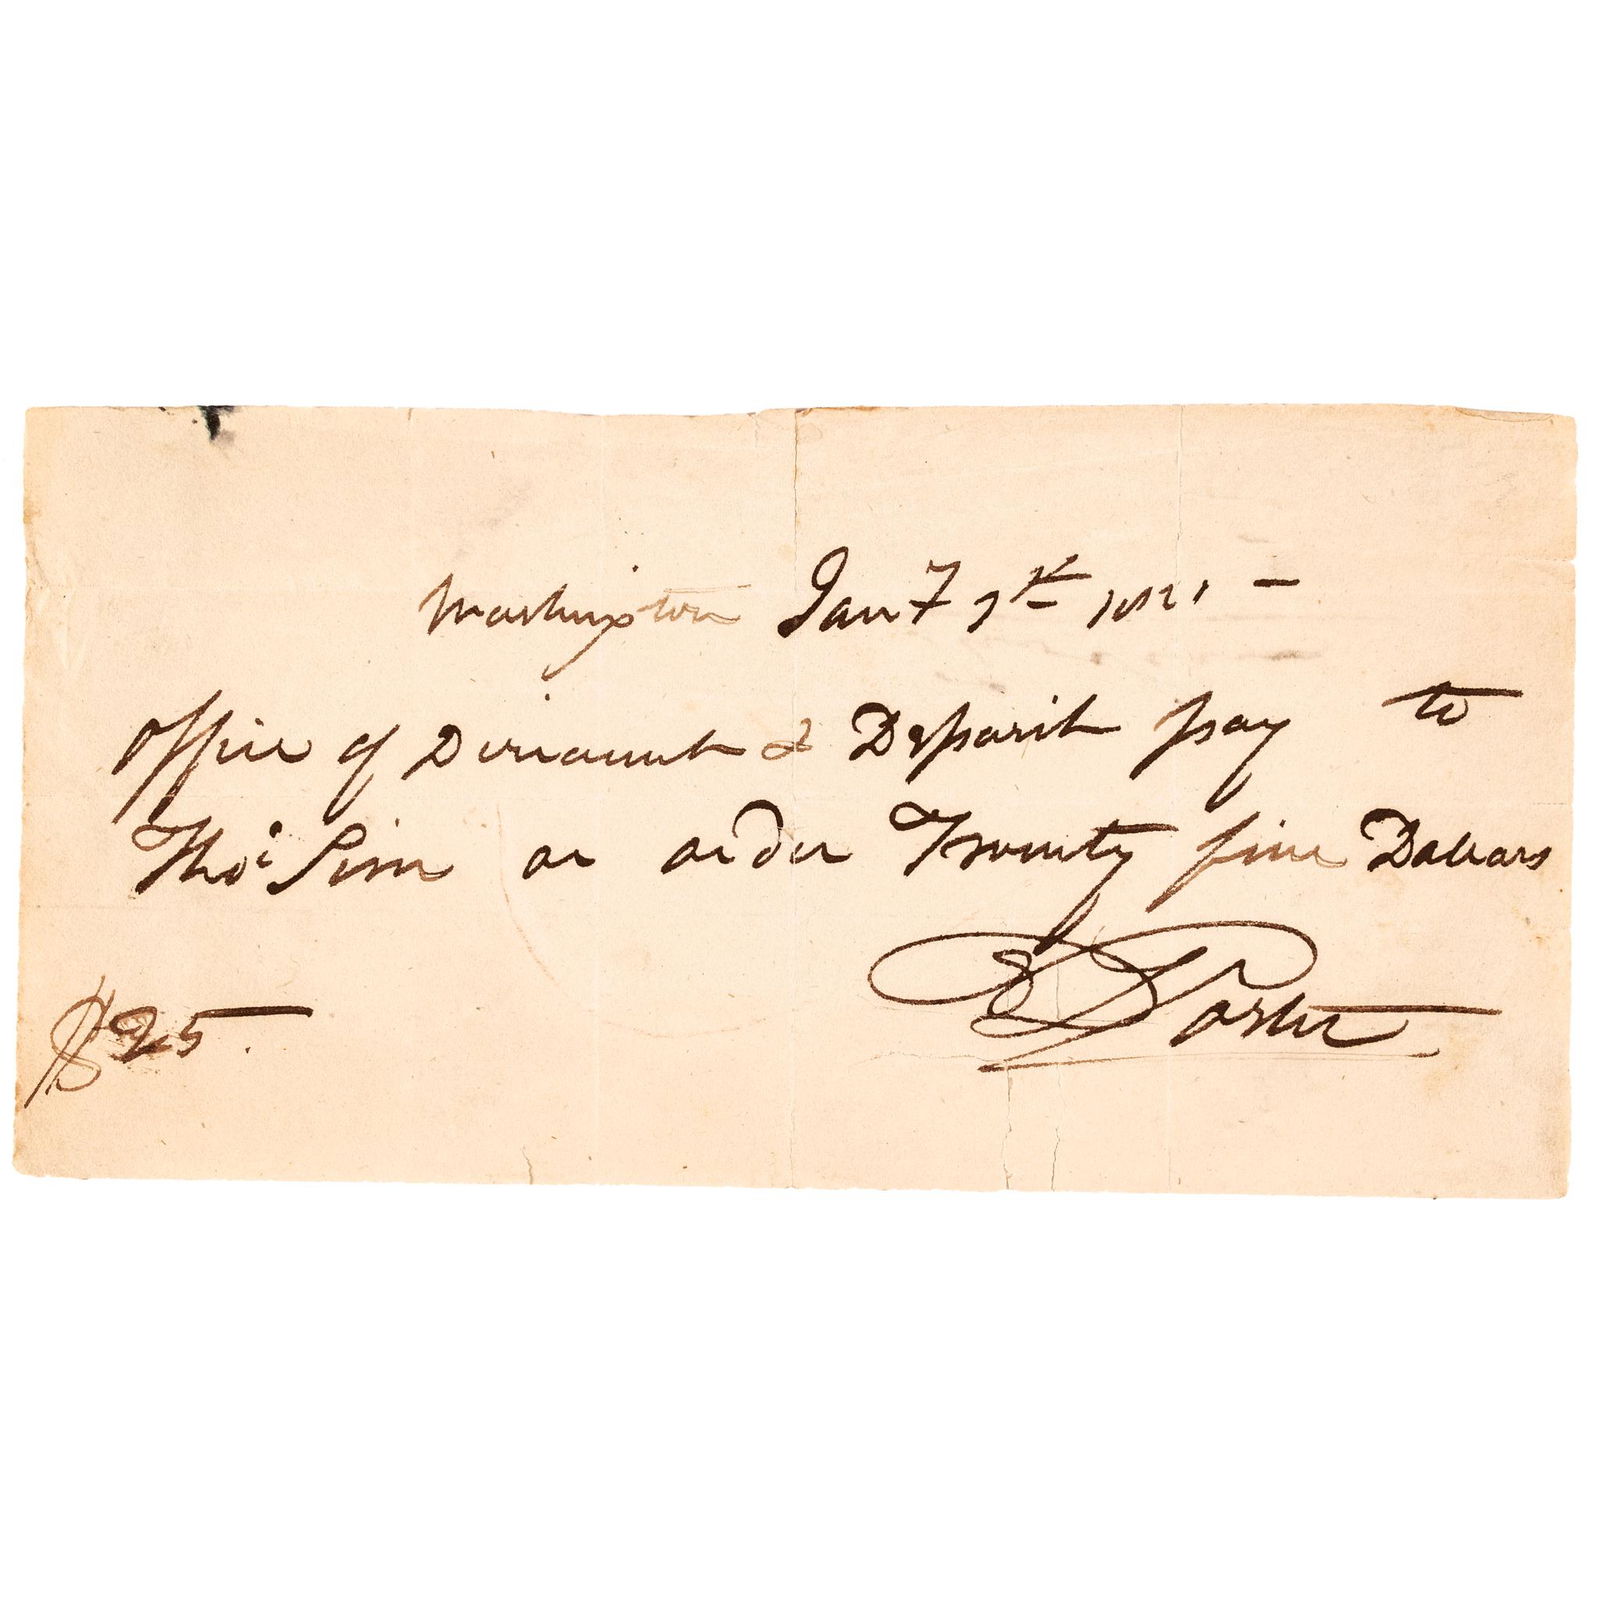 Washington Jany 1st 1821 —
Office of Discount & Deposit pay to
Thos Sim or order Twenty five Dollars
D Porter
$25.